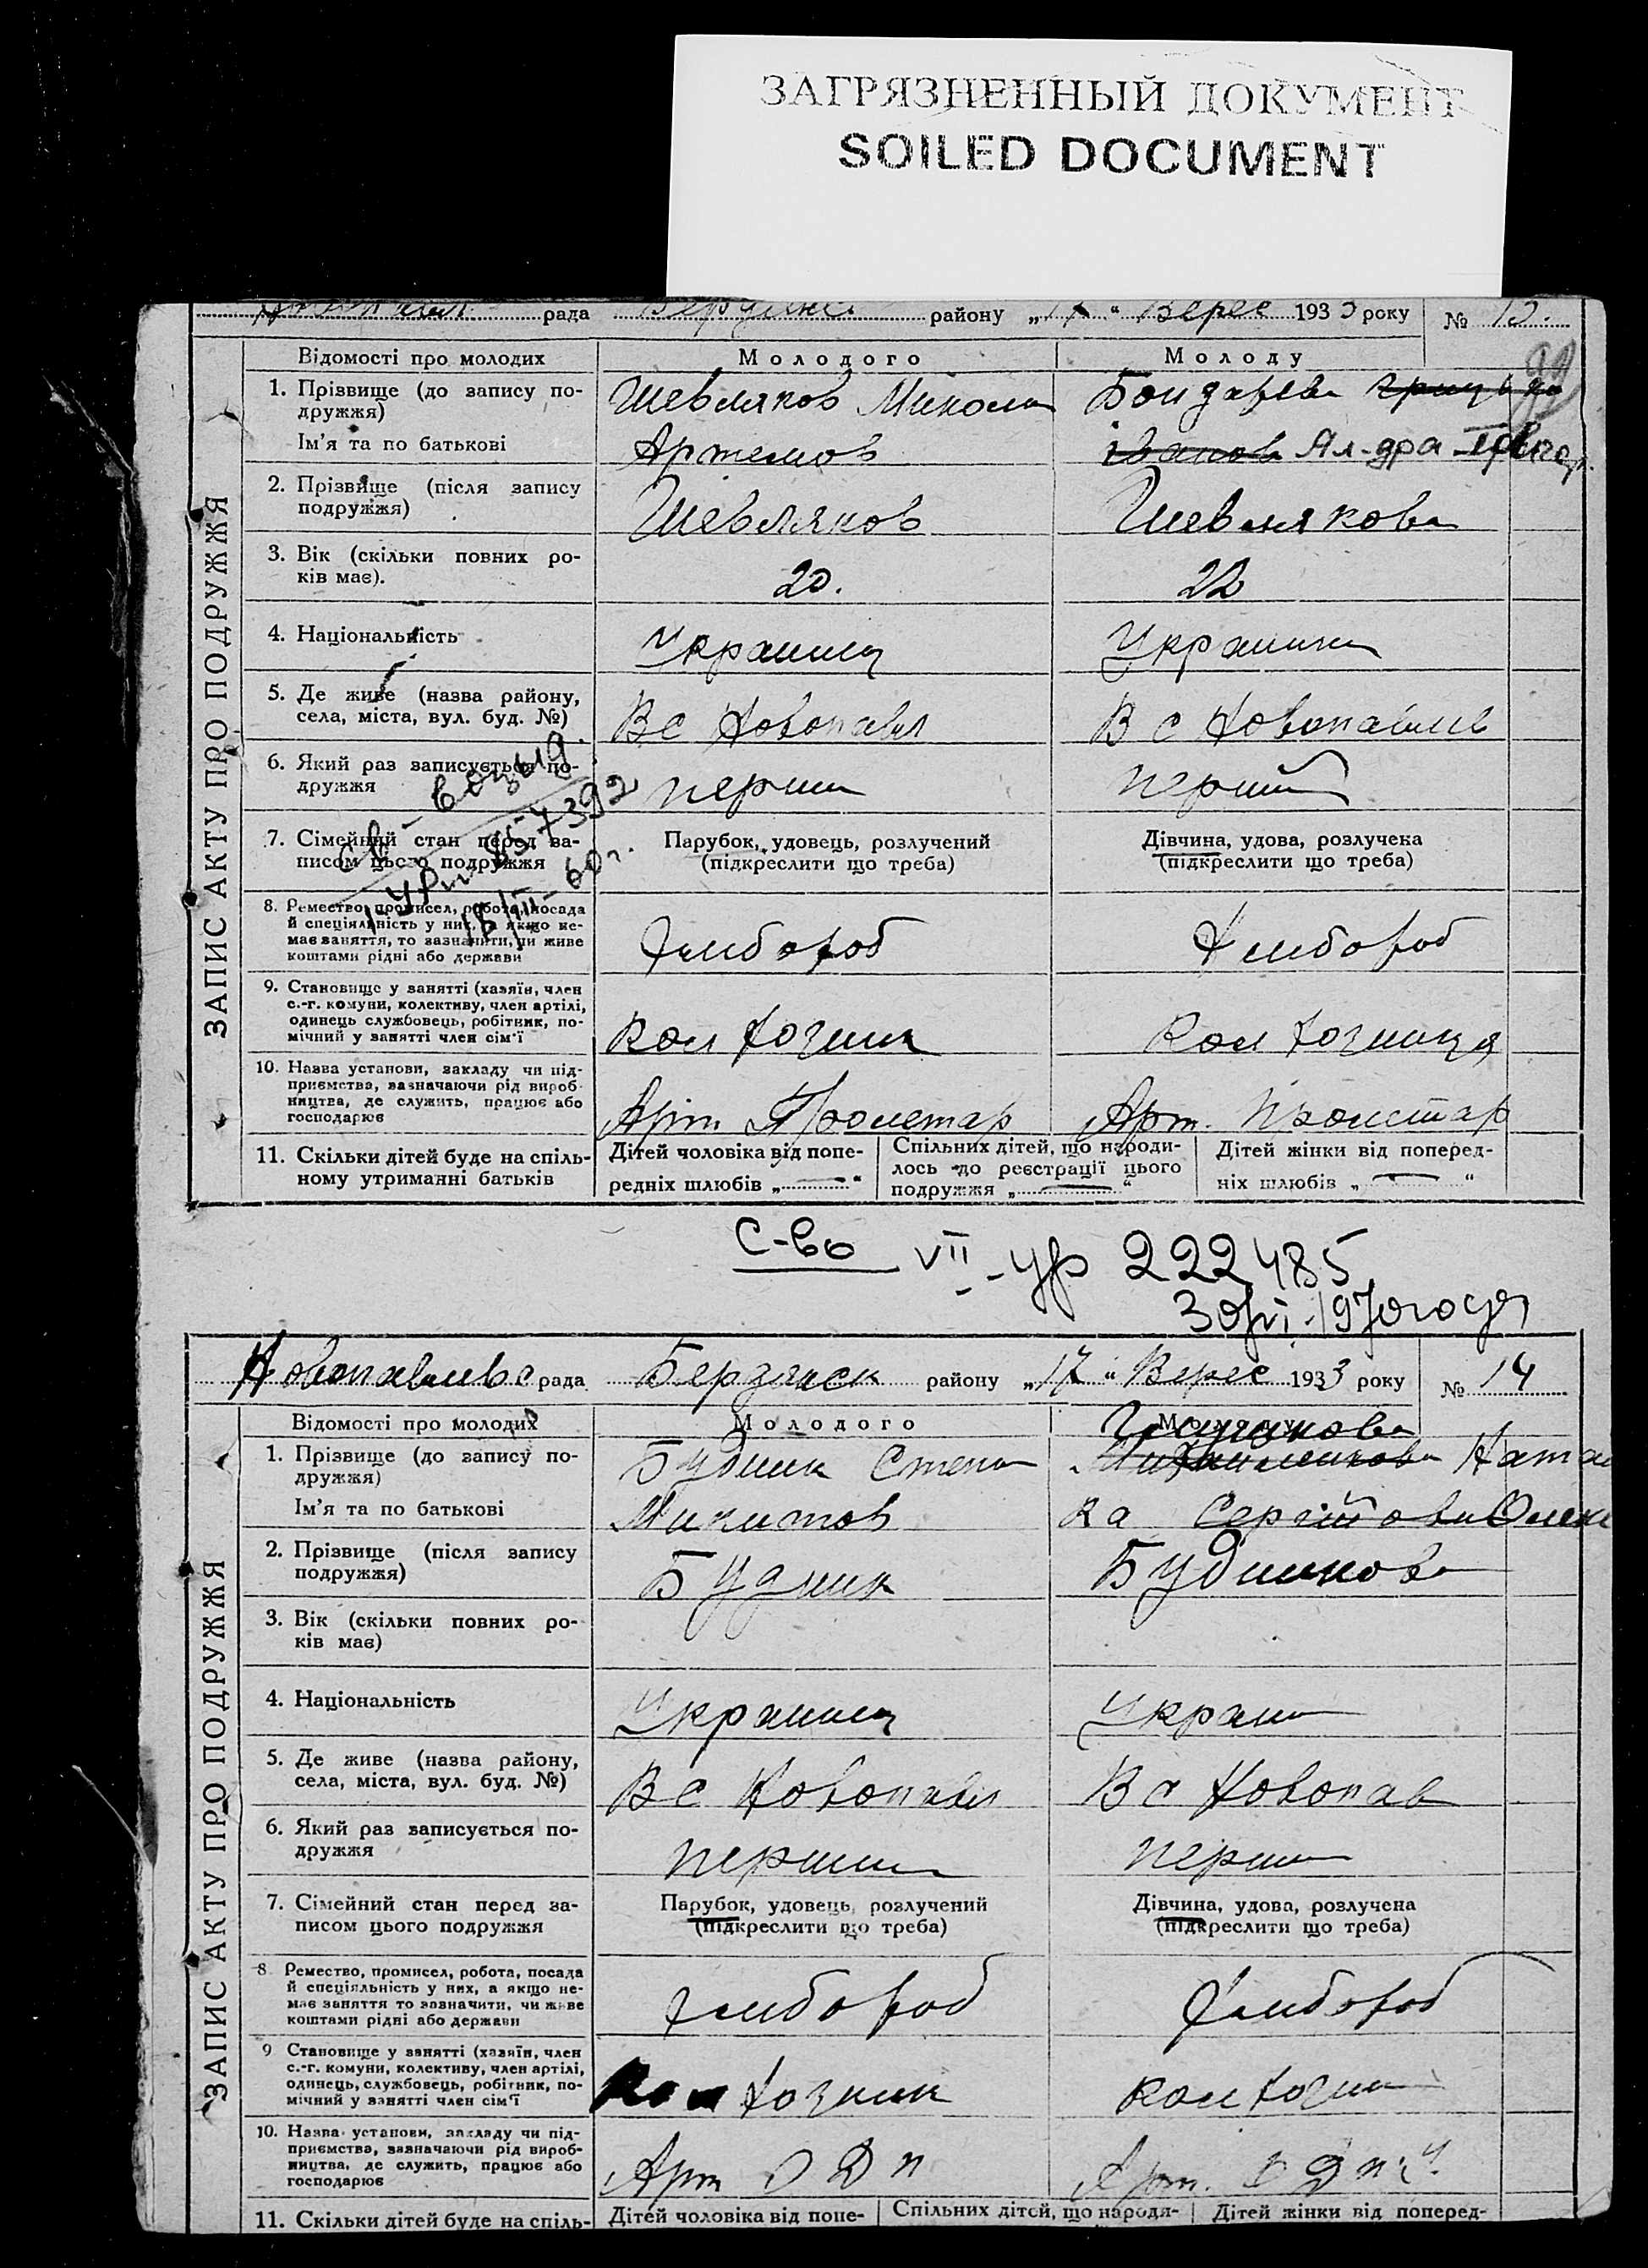 ЗАГРЯЗНЕННЫЙ ДОКУМЕНТ
SOILED DOCUMENT
рада району „17 “ Верес 1933 року №
ЗАПИС АКТУ ПРО ПОДРУЖЖЯ
Відомості про молодих Молодого Молоду
1. Прізвище (до запису по-
дружжя)
Шевляков Микола Бондарева
Ім'я та по батькові Артемов
2. Прізвище (після запису
подружжя)
Шевляков Шевлякова
3. Вік (скільки повних ро-
ків має).
20. 22
4. Національність Украинец Украинка
5. Де живе (назва району,
села, міста, вул. буд. №)
В с Новопавл В с Новопавлів
6. Який раз записується по-
дружжя
перший
7. Сімейний стан перед за-
писом цього подружжя
Парубок, удовець, розлучений
(підкреслити що треба)
Дівчина, удова, розлучека
(підкреслити що треба)
8. Ремество, промисел, робота, посада
й спеціяльність у них, а якщо не-
має заняття, то зазначити, чи живе
коштами рідні або держави
Хлибороб Хлибороб
9. Становище у занятті (хазяїн, член
с.-г. комуни, колективу, член артілі,
одинець службовець, робітник, по-
мічний у занятті член сім'ї
Колхозник Колхозниця
10. Назва установи, закладу чи під-
приємства, зазначаючи рід вироб-
ництва, де служить, працює або
господарює
Арт. Пролетар Арт. Пролетар
11. Скільки дітей буде на спіль-
ному утриманні батьків
Дітей чоловіка від попе-
редніх шлюбів „ “
Спільних дітей, що народи-
лось до реєстрації цього
подружжя „ “
Дітей жінки від поперед-
ніх шлюбів „ “
С-во VII-ур 222485
1970 года
Новопавлівс рада Бердянск району „17 “ Верес 1933 року № 14
ЗАПИС АКТУ ПРО ПОДРУЖЖЯ
Відомості про молодих Молодого
1. Прізвище (до запису по-
дружжя)
Будник Степан Натал
Ім'я та по батькові Микитов ка
2. Прізвище (після запису
подружжя)
Будник Будникова
3. Вік (скільки повних ро-
ків має)
4. Національність Украинец Украин
5. Де живе (назва району,
села, міста, вул. буд. №)
В с Новопавл В с Новопав
6. Який раз записується по-
дружжя
7. Сімейний стан перед за-
писом цього подружжя
Парубок, удовець, розлучений
(підкреслити що треба)
Дівчина, удова, розлучена
(підкреслити що треба)
8 Ремество, промисел, робота, посада
й спеціяльність у них, а якщо не-
має заняття то зазначити, чи живе
коштами рідні або держави
Хлибороб Хлибороб
9 Становище у занятті (хазяїн, член
с.-г. комуни, колективу, член артілі,
одинець, службовець, робітник, по-
мічний у занятті член сім'ї
Колхозник
10. Назва установи, закладу чи під-
приємства, зазначаючи рід вироб-
ництва, де служить, працює або
господарює
Арт Арт.
11. Скільки дітей буде на спіль- Дітей чоловіка від попе- Спільних дітей, що народи- Дітей жінки від поперед-